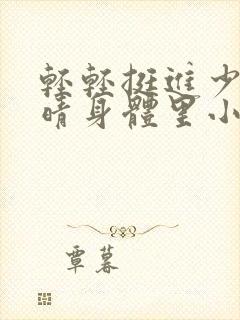 輕輕挺進少
晴身體里小
覃暮